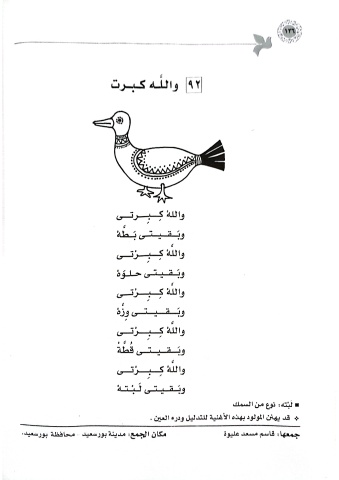 ١٣٦
٩٢ والله كبرت
والله كِـبِـرتى
وبَـقـيـتى بَـطَّـهْ
واللَّه كِـبِـرْتى
وبَـقـيـتى حـلـوَهْ
واللَّه كِـبِـرْتى
وبَـقـيـتى وِزَّهْ
واللَّه كِـبِـرْتى
وبَـقـيـتى قُطَّهْ
واللَّه كِـبِـرْتى
وبَـقـيـتى لَبْتَـهْ
■ لبْته: نوع من السمك
❖ قد يهنن المولود بهذه الأغنية للتدليل ودرء العين .
جمعها: قاسم مسعد عليوة مكان الجمع: مدينة بورسعيد - محافظة بورسعيد.